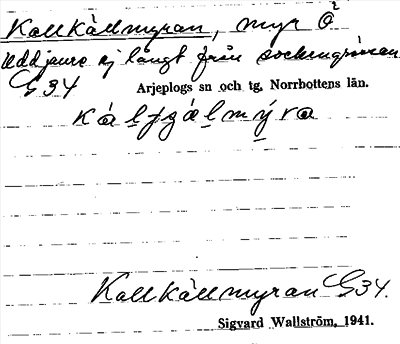 Kallkällmyran, myr Ö
Uddjaure ej långt från sockengränsen
G34
Arjeplogs sn och tg, Norrbottens län.
Kallkällmyran G34.
Sigvard Wallström, 1941.